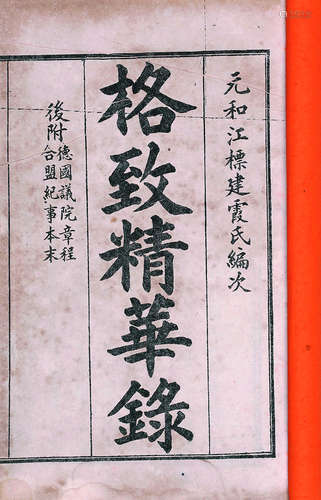 元和江標建霞氏編次
格致精華錄
後附德國議院章程
合盟紀事本末